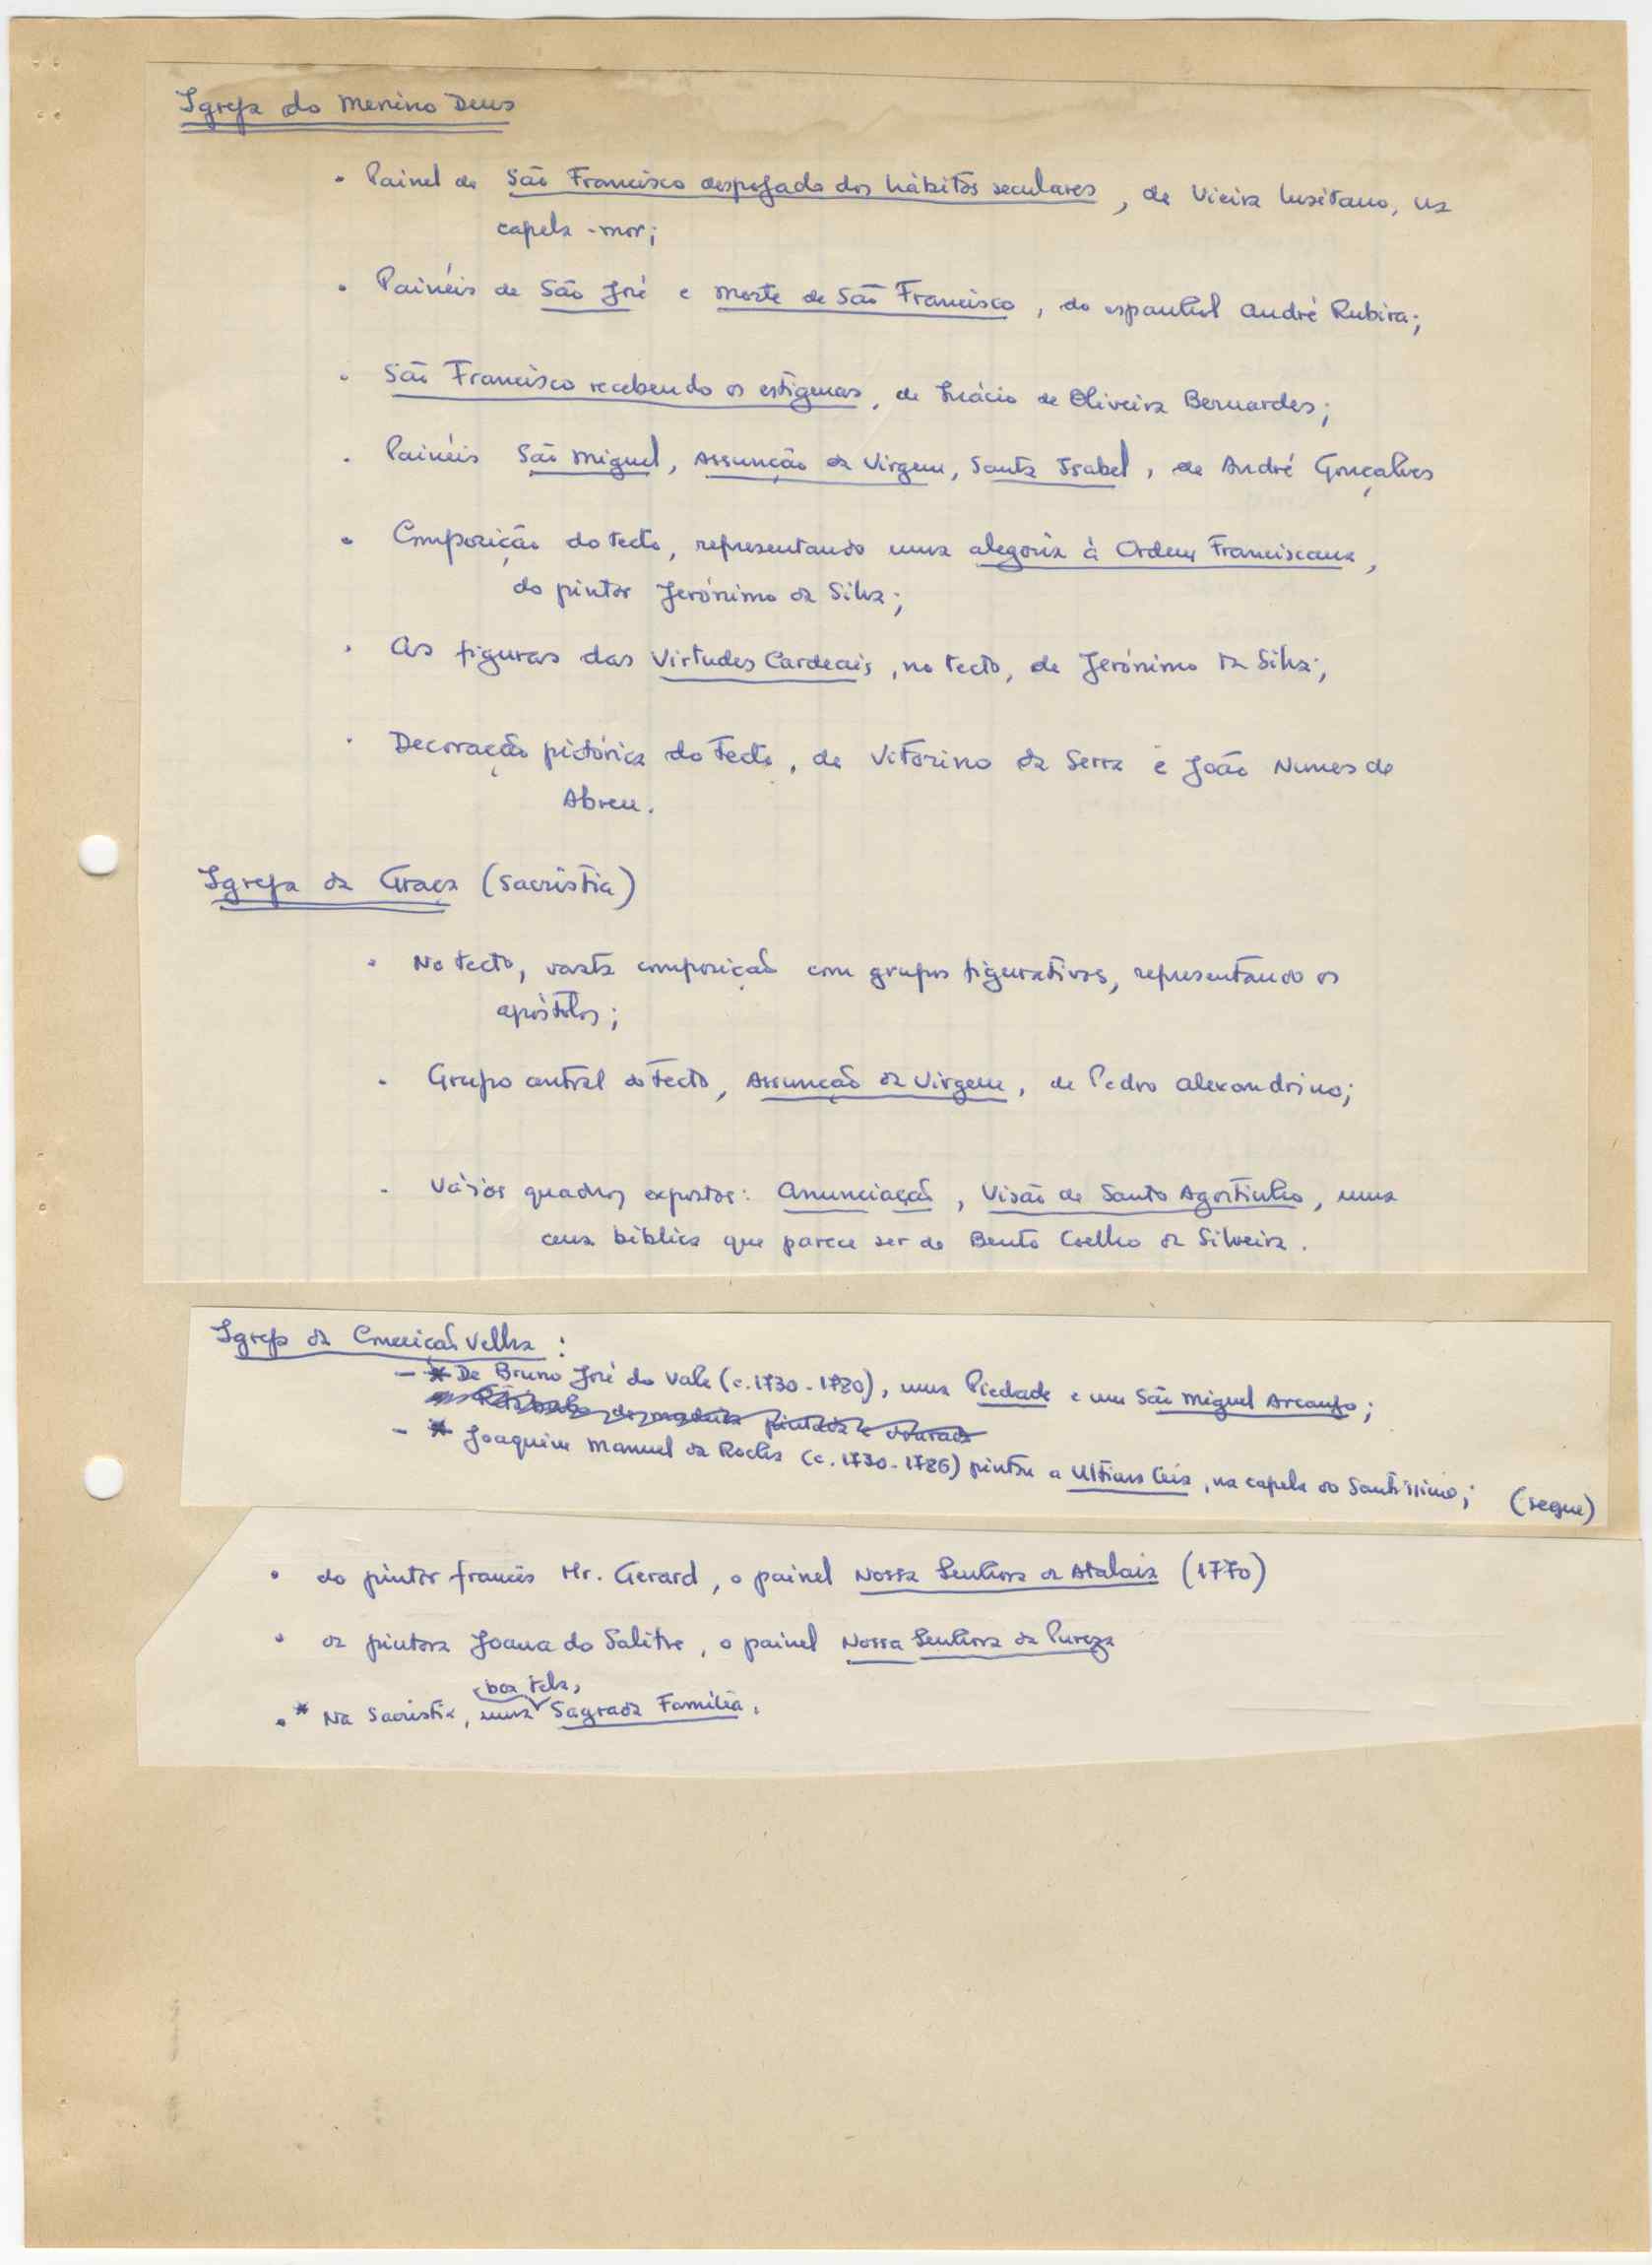 Igreja do Menino Deus
• Painel de São Francisco despojado dos hábitos seculares, de Vieira Lusitano, na
capela-mor;
• Painéis de São José e Morte de São Francisco, do espanhol André Rubira;
• São Francisco recebendo os estigmas, de Inácio de Oliveira Bernardes;
• Painéis São Miguel, Assunção da Virgem, Santa Isabel, de André Gonçalves
• Composição do tecto, representando uma alegoria à Ordem Franciscana,
do pintor Jerónimo da Silva;
• As figuras das Virtudes Cardeais, no tecto, de Jerónimo da Silva;
• Decoração pictórica do tecto, de Vitorino da Serra e João Nunes de
Abreu.
Igreja da Graça (sacristia)
• No tecto, vasta composição com grupos figurativos, representando os
apóstolos;
• Grupo central do tecto, Assunção da Virgem, de Pedro Alexandrino;
• Vários quadros expostos: Anunciação, Visão de Santo Agostinho, uma
cena bíblica que parece ser de Bento Coelho da Silveira.
Igreja da Conceição Velha:
— * De Bruno José do Vale (c. 1730-1780), uma Piedade e um São Miguel Arcanjo;
de madeira pintada e dourada
— * Joaquim Manuel da Rocha (c. 1730-1786) pintou a Última Ceia, na capela do Santíssimo; (segue)
• do pintor francês Mr. Gerard, o painel Nossa Senhora da Atalaia (1770)
• da pintora Joana do Salitre, o painel Nossa Senhora da Pureza
boa tela,
• * Na Sacristia, uma Sagrada Família.